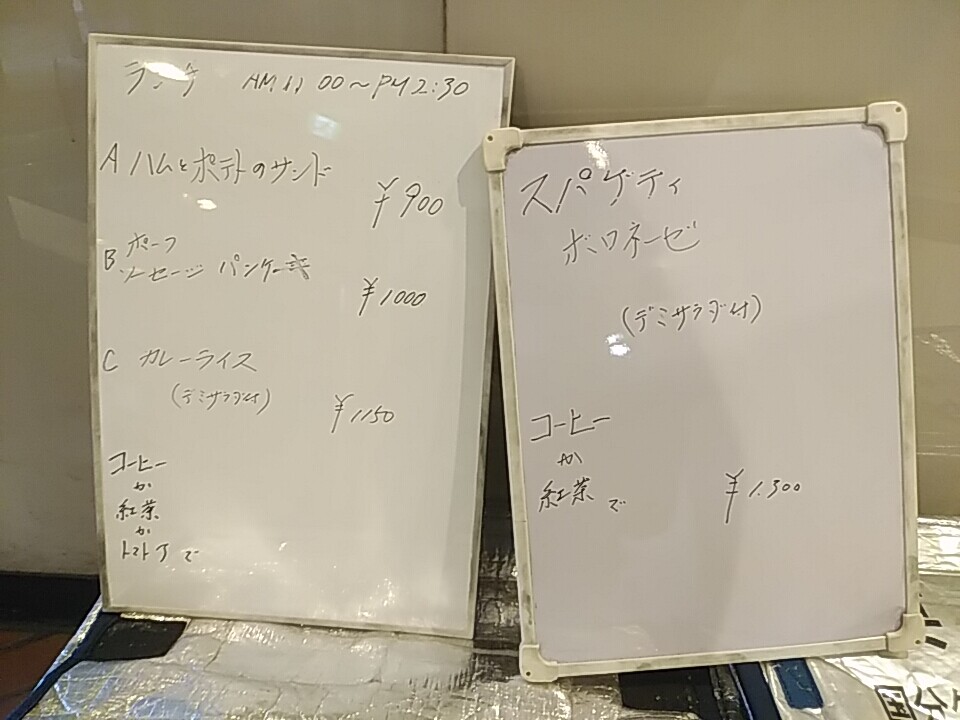 ランチ AM 11 00～PM 2:30
A ハムとポテトのサンド
¥900
B ポーク
ソーセージ パンケーキ
¥1000
C カレーライス
(デミサラダ付)
¥1150
コーヒー
か
紅茶
か
トマトJで
スパゲティ
ボロネーゼ
(デミサラダ付)
コーヒー
か
紅茶で
¥1.300